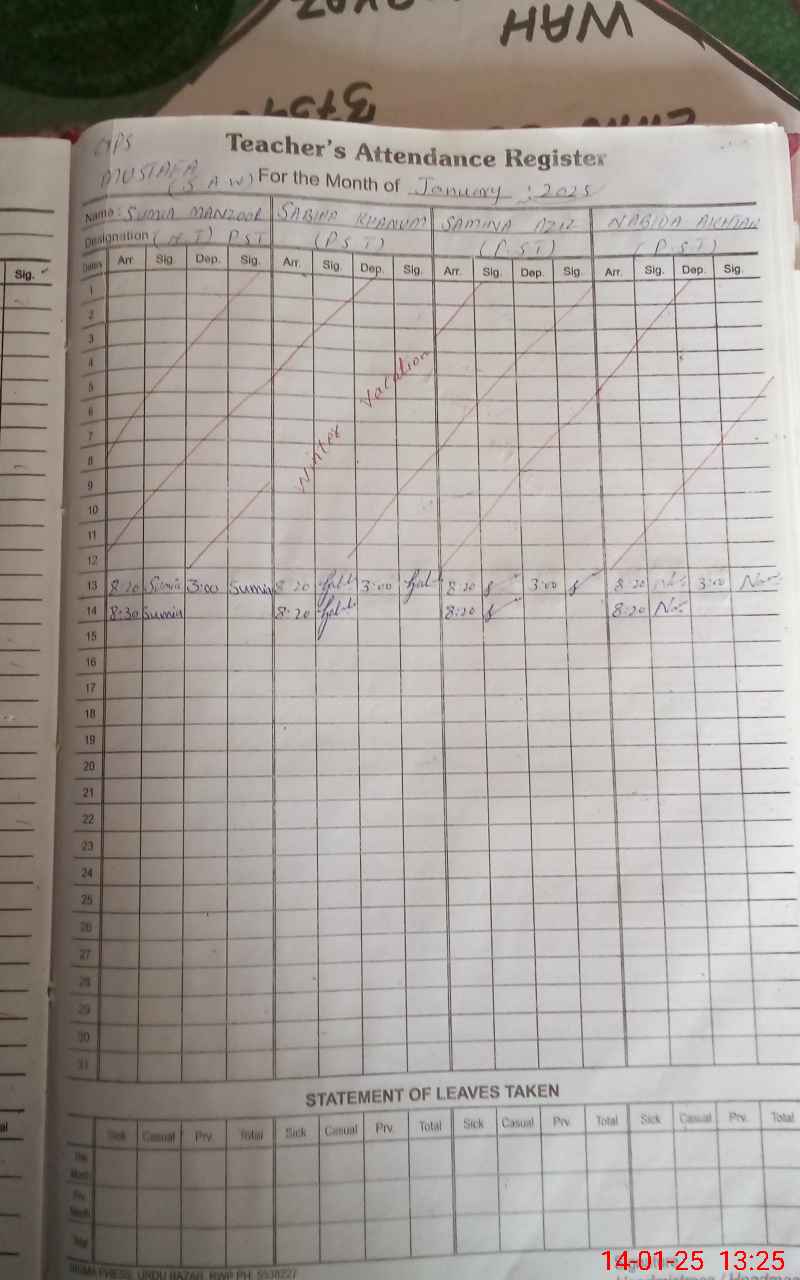 WAH
3754
GPS
Teacher's Attendance Register
MUSTAFA
(S A W) For the Month of January : 2025
Name: SUMIA MANZOOR SABIHA KHANUM SAMINA AZIZ NABIDA AKHTAR
Designation (H.T) PST (P.S.T) (P.S.T) (P.S.T)
Dates Arr. Sig. Dep. Sig. Arr. Sig. Dep. Sig. Arr. Sig. Dep. Sig. Arr. Sig. Dep. Sig.
Sig.
1
2
3
4
5
6
7
8
9
10
11
12
Winter Vacation
13 8:20 Sumia 3:00 Sumia 8:20 3:00 8:20 3:00 8:20 3:00
14 8:30 Sumia 8:20 8:20 8:20
15
16
17
18
19
20
21
22
23
24
25
26
27
28
29
30
31
STATEMENT OF LEAVES TAKEN
Sick Casual Prv. Total Sick Casual Prv. Total Sick Casual Prv. Total Sick Casual Prv. Total
This
Month
Prv.
Month
Total
PRESS, URDU BAZAR, RWP PH: 5538227
Signature
14-01-25 13:25